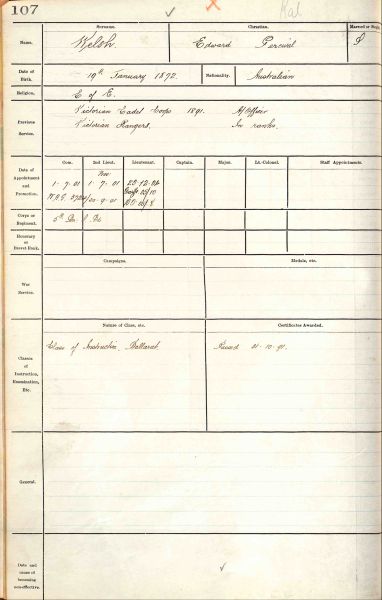 107
Surname. Christian. Married or Single.
Name. Welsh. Edward Percival S
Date of Birth. 19th January 1872. Nationality. Australian
Religion. C of E.
Previous Service.
Victorian Cadet Corps 1891. A/Officer
Victorian Rangers. In ranks.
Date of Appointment and Promotion.
Com. 2nd Lieut. Lieutenant. Captain. Major. Lt.-Colonel. Staff Appointments.
1. 7. 01 1. 7. 01
Corps or Regiment.
Honorary or Brevet Rank.
War Service.
Campaigns. Medals, etc.
Classes of Instruction, Examination, Etc.
Nature of Class, etc. Certificates Awarded.
Class of Instruction Ballarat. Passed 31. 10. 91.
General.
Date and cause of becoming non-effective.